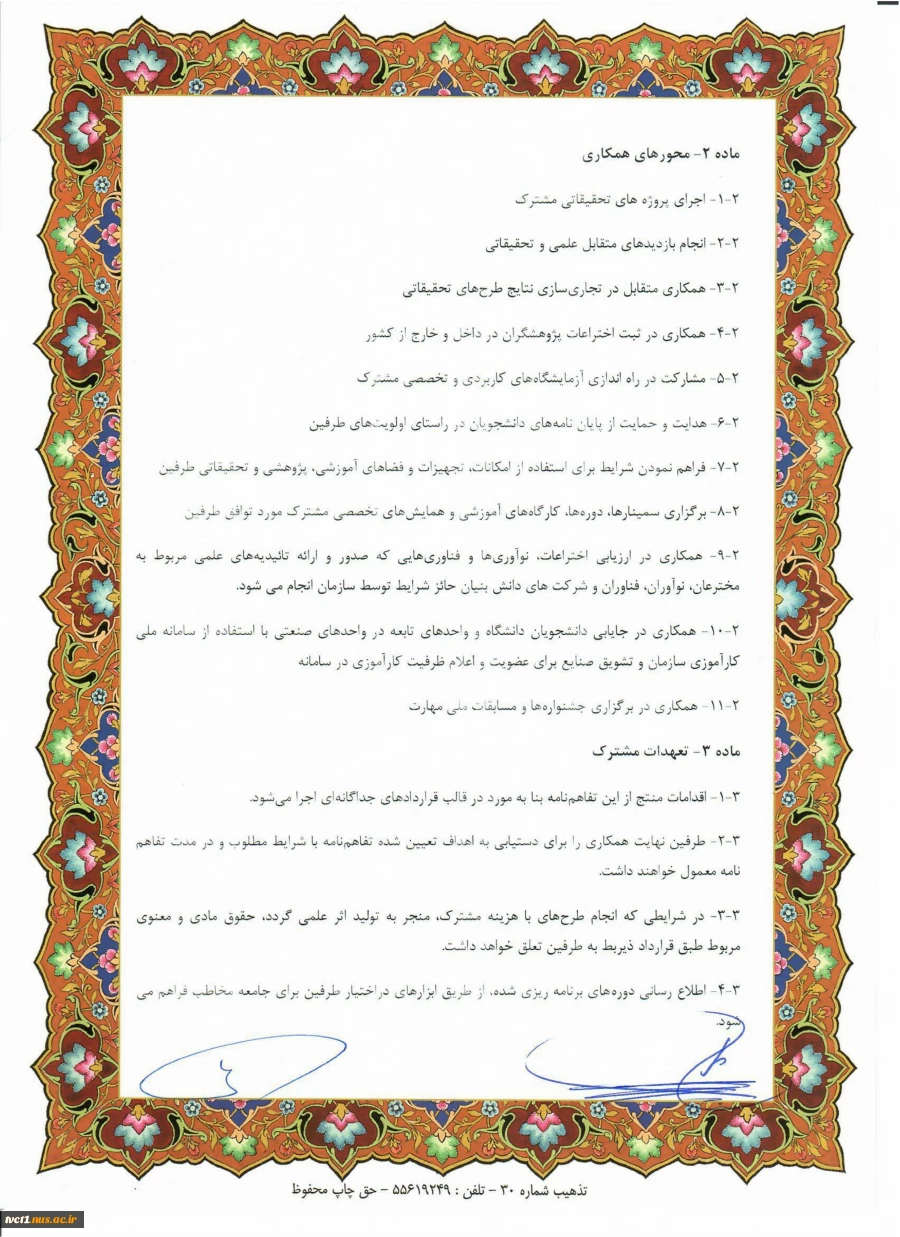 ماده ۲- محورهای همکاری
۲-۱- اجرای پروژه های تحقیقاتی مشترک
۲-۲- انجام بازدیدهای متقابل علمی و تحقیقاتی
۲-۳- همکاری متقابل در تجاری‌سازی نتایج طرح‌های تحقیقاتی
۲-۴- همکاری در ثبت اختراعات پژوهشگران در داخل و خارج از کشور
۲-۵- مشارکت در راه اندازی آزمایشگاه‌های کاربردی و تخصصی مشترک
۲-۶- هدایت و حمایت از پایان نامه‌های دانشجویان در راستای اولویت‌های طرفین
۲-۷- فراهم نمودن شرایط برای استفاده از امکانات، تجهیزات و فضاهای آموزشی، پژوهشی و تحقیقاتی طرفین
۲-۸- برگزاری سمینارها، دوره‌ها، کارگاه‌های آموزشی و همایش‌های تخصصی مشترک مورد توافق طرفین
۲-۹- همکاری در ارزیابی اختراعات، نوآوری‌ها و فناوری‌هایی که صدور و ارائه تائیدیه‌های علمی مربوط به
مخترعان، نوآوران، فناوران و شرکت های دانش بنیان حائز شرایط توسط سازمان انجام می شود.
۲-۱۰- همکاری در جایابی دانشجویان دانشگاه و واحدهای تابعه در واحدهای صنعتی با استفاده از سامانه ملی
کارآموزی سازمان و تشویق صنایع برای عضویت و اعلام ظرفیت کارآموزی در سامانه
۲-۱۱- همکاری در برگزاری جشنواره‌ها و مسابقات ملی مهارت
ماده ۳- تعهدات مشترک
۳-۱- اقدامات منتج از این تفاهم‌نامه بنا به مورد در قالب قراردادهای جداگانه‌ای اجرا می‌شود.
۳-۲- طرفین نهایت همکاری را برای دستیابی به اهداف تعیین شده تفاهم‌نامه با شرایط مطلوب و در مدت تفاهم
نامه معمول خواهند داشت.
۳-۳- در شرایطی که انجام طرح‌های با هزینه مشترک، منجر به تولید اثر علمی گردد، حقوق مادی و معنوی
مربوط طبق قرارداد ذیربط به طرفین تعلق خواهد داشت.
۳-۴- اطلاع رسانی دوره‌های برنامه ریزی شده، از طریق ابزارهای دراختیار طرفین برای جامعه مخاطب فراهم می
شود.
تذهیب شماره ۳۰ - تلفن : ۵۵۶۱۹۲۴۹ - حق چاپ محفوظ
tvct1.nus.ac.ir